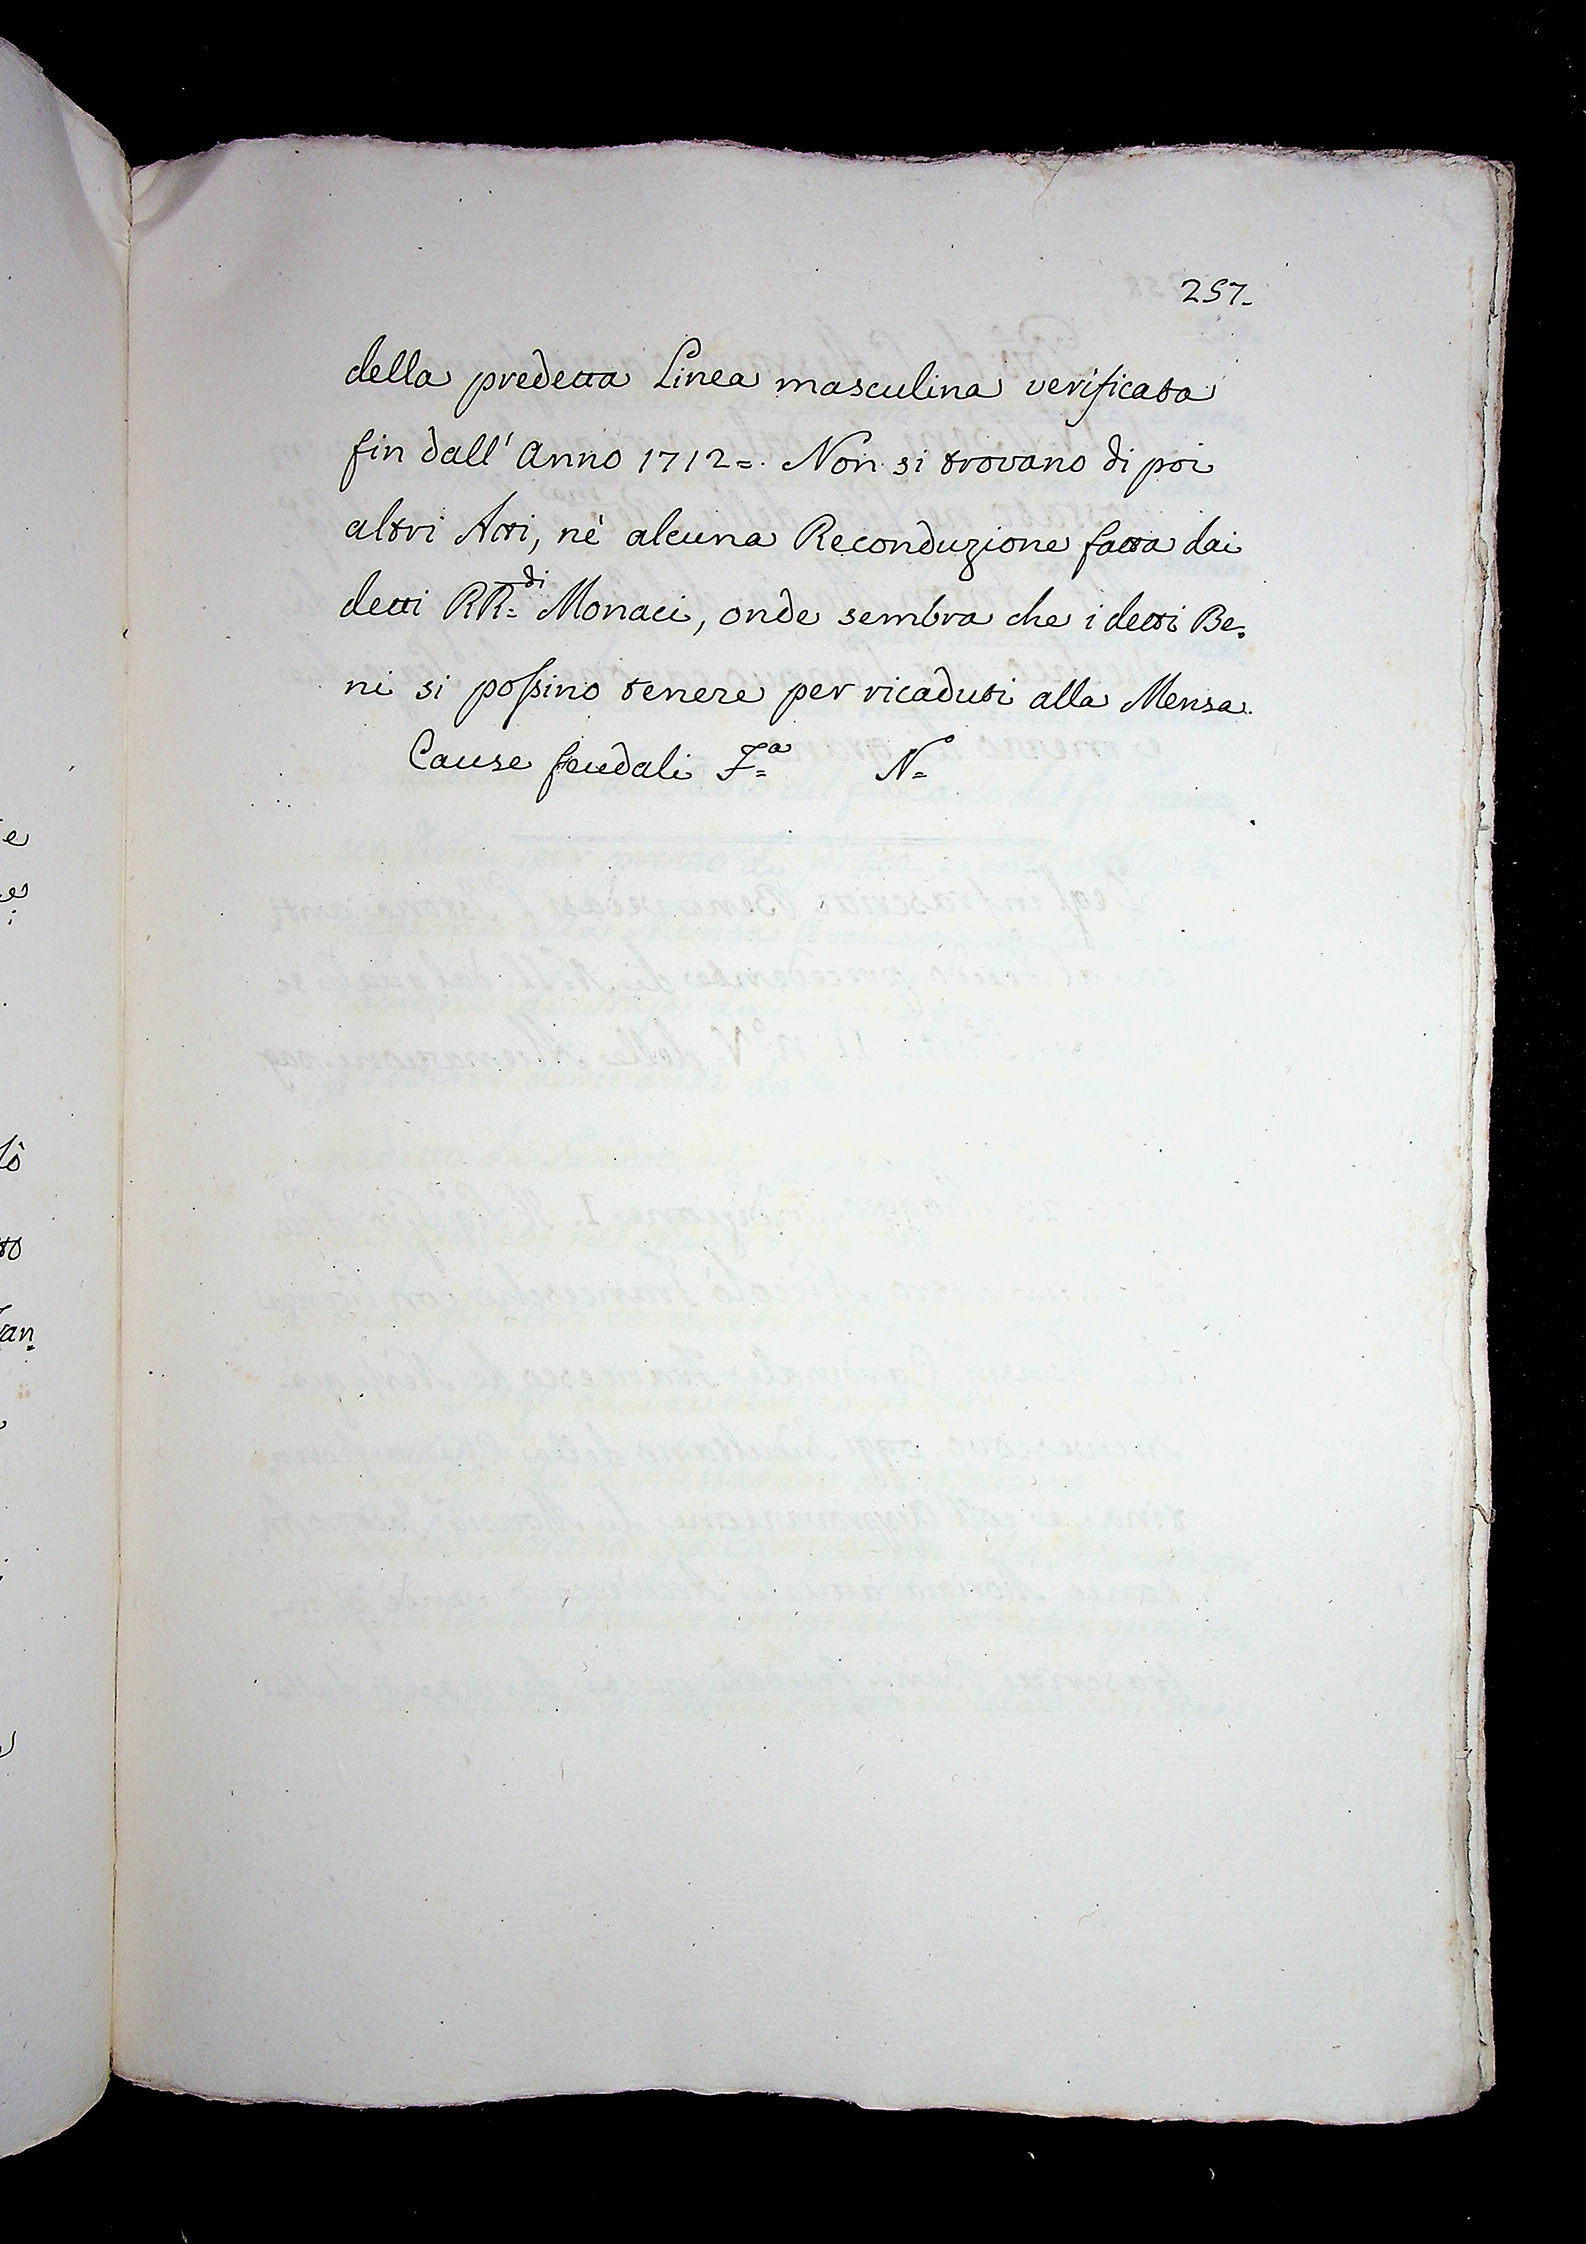 257.
della predetta Linea masculina verificata
fin dall' Anno 1712=. Non si trovano di poi
altri Atti, nè alcuna Reconduzione fatta dai
detti RR.di Monaci, onde sembra che i detti Be=
ni si possino tenere per ricaduti alla Mensa.
Cause feudali F.a N.o